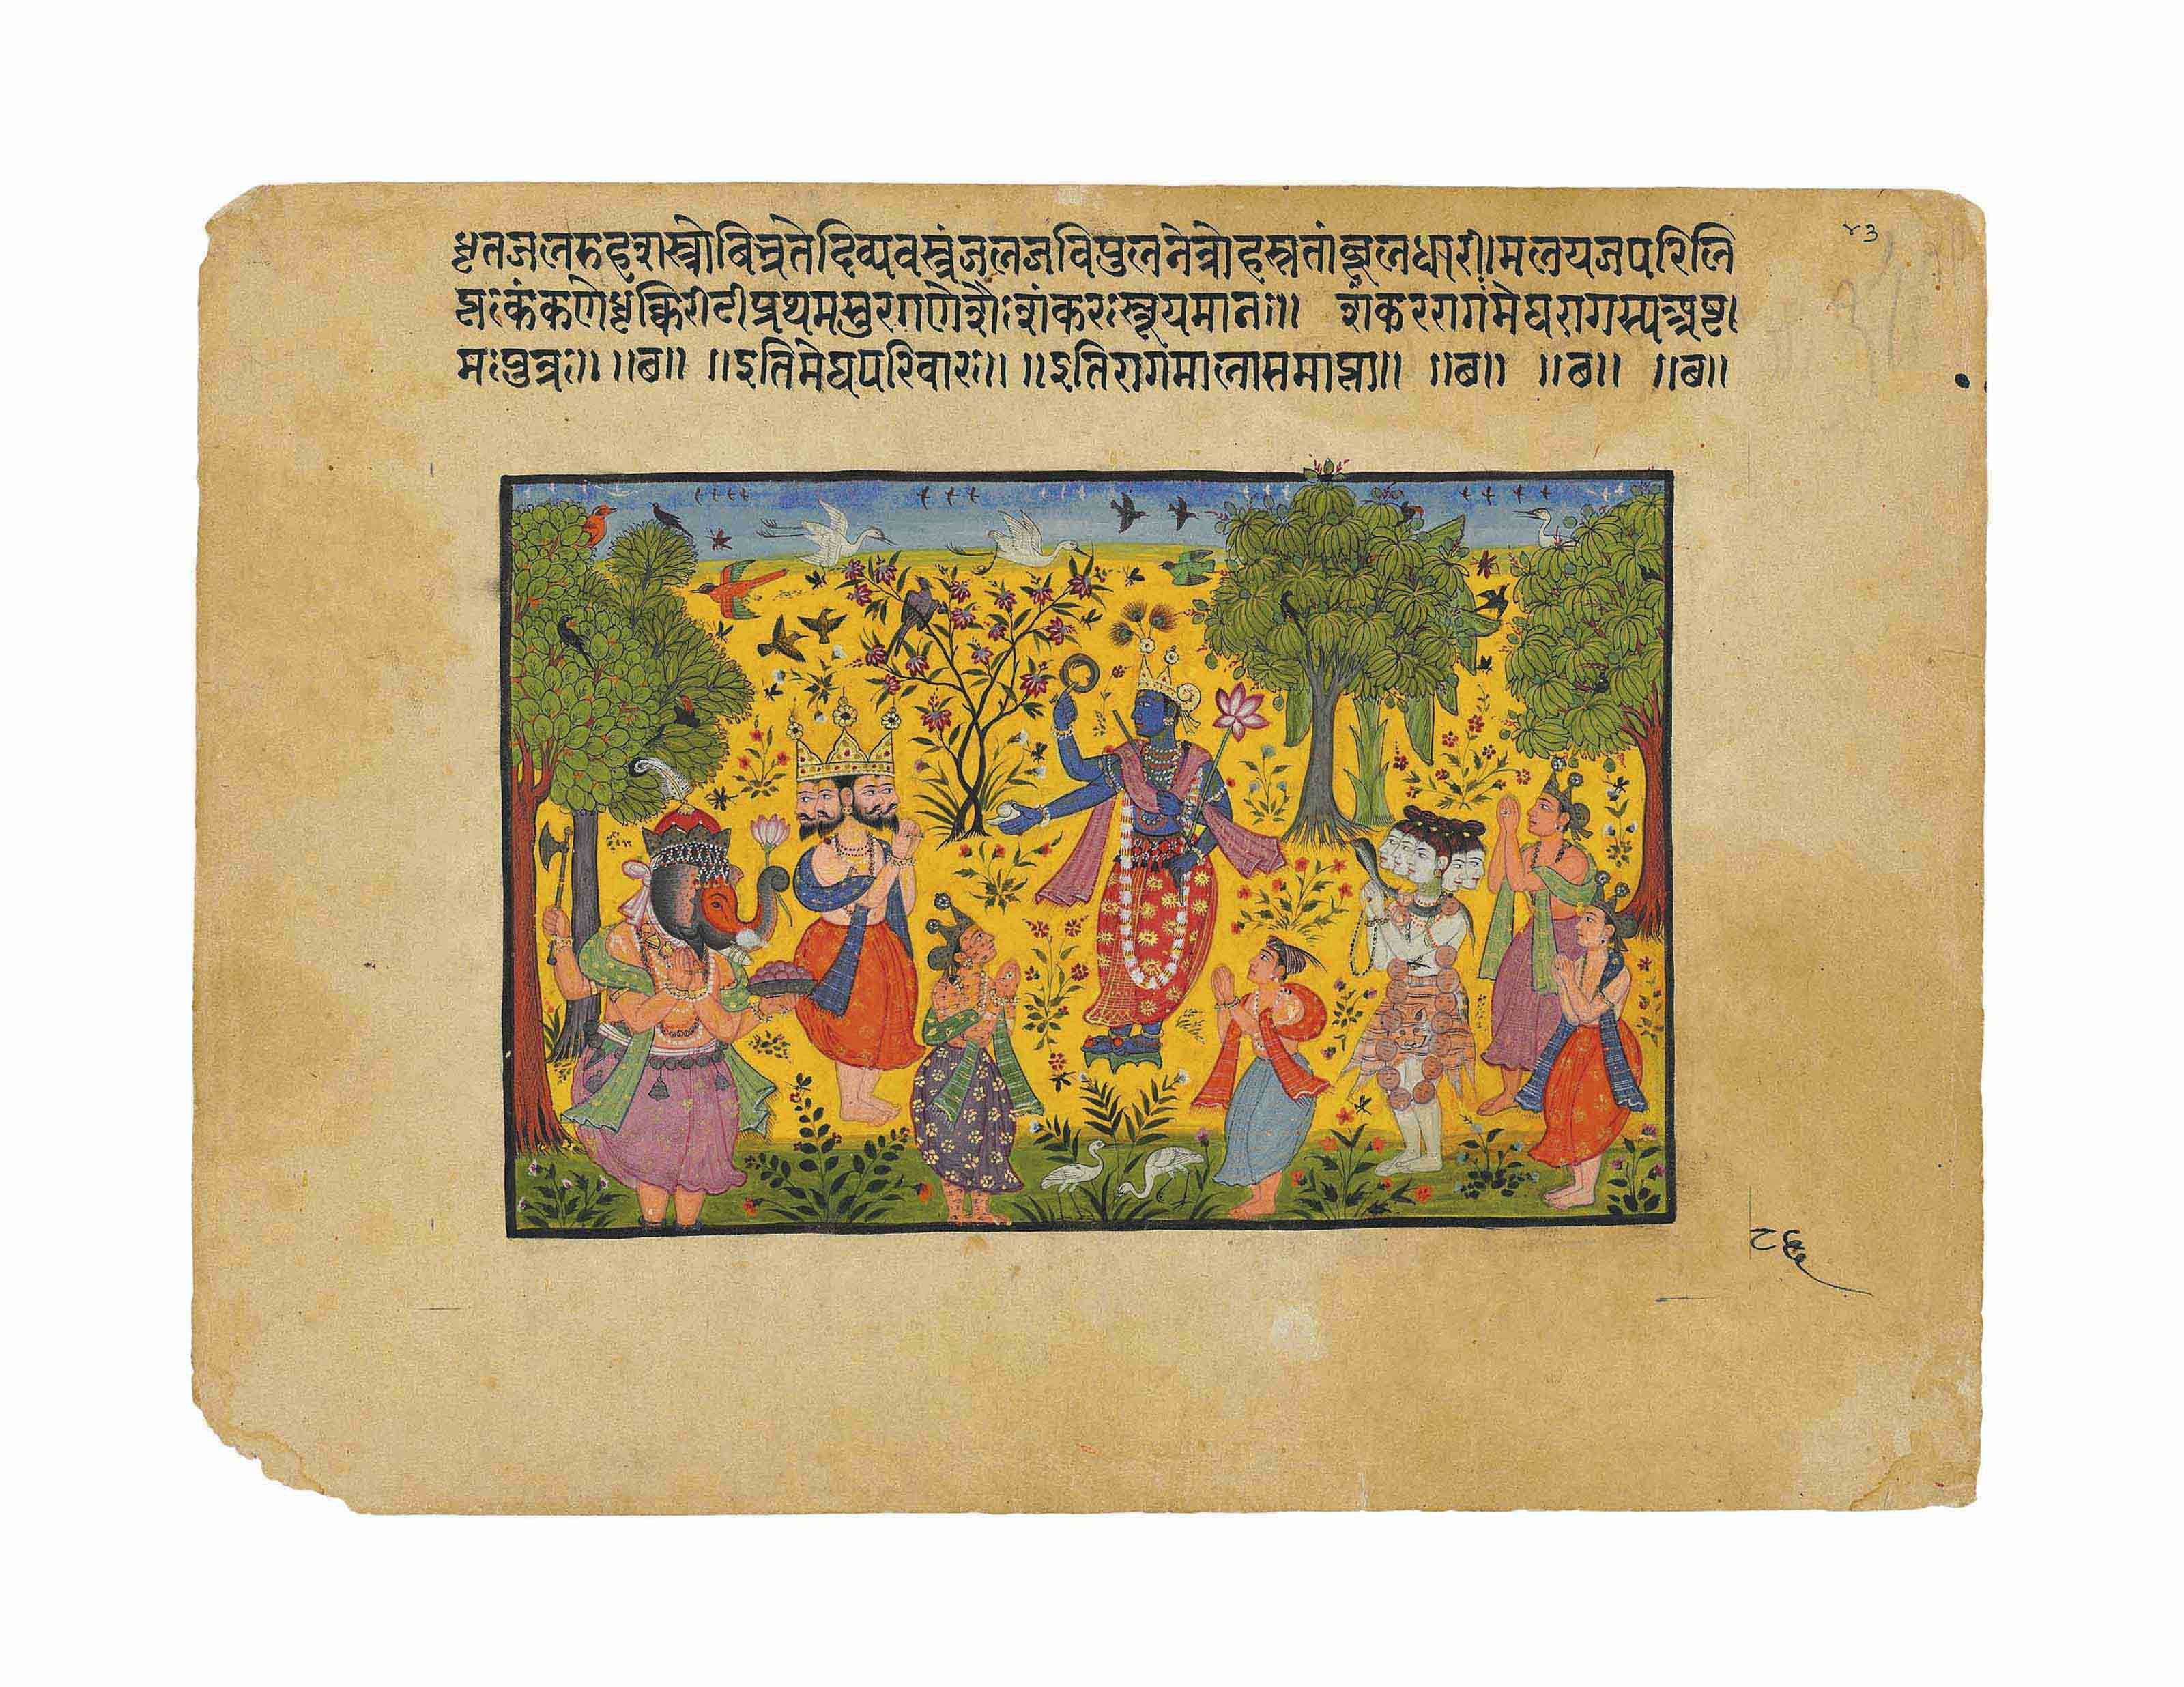 धृतजलरुहशस्त्रो बिभ्रते दिव्यवस्त्रं जलजविपुलनेत्रो हस्त तांबूलधारी। मलयजपरिलि
प्तः कंकणैर्धृक्किरीटी प्रथमसुरगणेशैः शंकरः स्तूयमानः॥ शंकररागं मेघरागस्य अष्ट।
मः पुत्रः॥ ॥ब॥ ॥इति मेघपरिवारः॥ ॥इति रागमालासमाप्ता॥ ॥ब॥ ॥ब॥ ॥ब॥
४३
८६